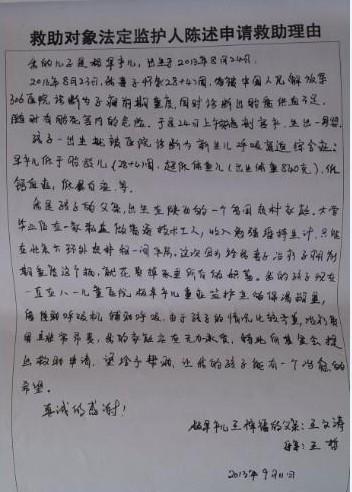 救助对象法定监护人陈述申请救助理由
我的儿子是极早早儿，出生于2013年8月24日。
2013年8月23日，我妻子怀孕28+4周，在中国人民解放军
306医院诊断为子痫前期重度，同时诊断出胎盘供血不足，
随时有胎死宫内的危险。于是24日上午施剖宫术，生出一男婴。
孩子一出生就被医院诊断为新生儿呼吸窘迫综合征；
早产儿低于胎龄儿（28+4周），超低体重儿（出生体重840克），低
钙血症，低蛋白血症等。
我是孩子的父亲，出生在陕西的一个贫困农村家庭，大学
毕业后在一家做普通技术工人，收入勉强维持生计，只能
在北京六环外农村租一间平房。这次因为给妻子治疗子痫前
期重度这个病，就花费掉家里所有的积蓄。我的孩子现在
一直在八一儿童医院极早早儿重症监护室的保温箱里，
用呼吸机辅助呼吸。由于孩子的情况比较严重，治疗费
用非常昂贵，我的家庭实在无力承担，特此向基金会提
出救助申请，望给予帮助，让我的孩子能有一个治愈的
希望。
真诚的感谢！
极早早儿王梓穑的父亲：王文涛
母亲：王哲
2013年9月11日